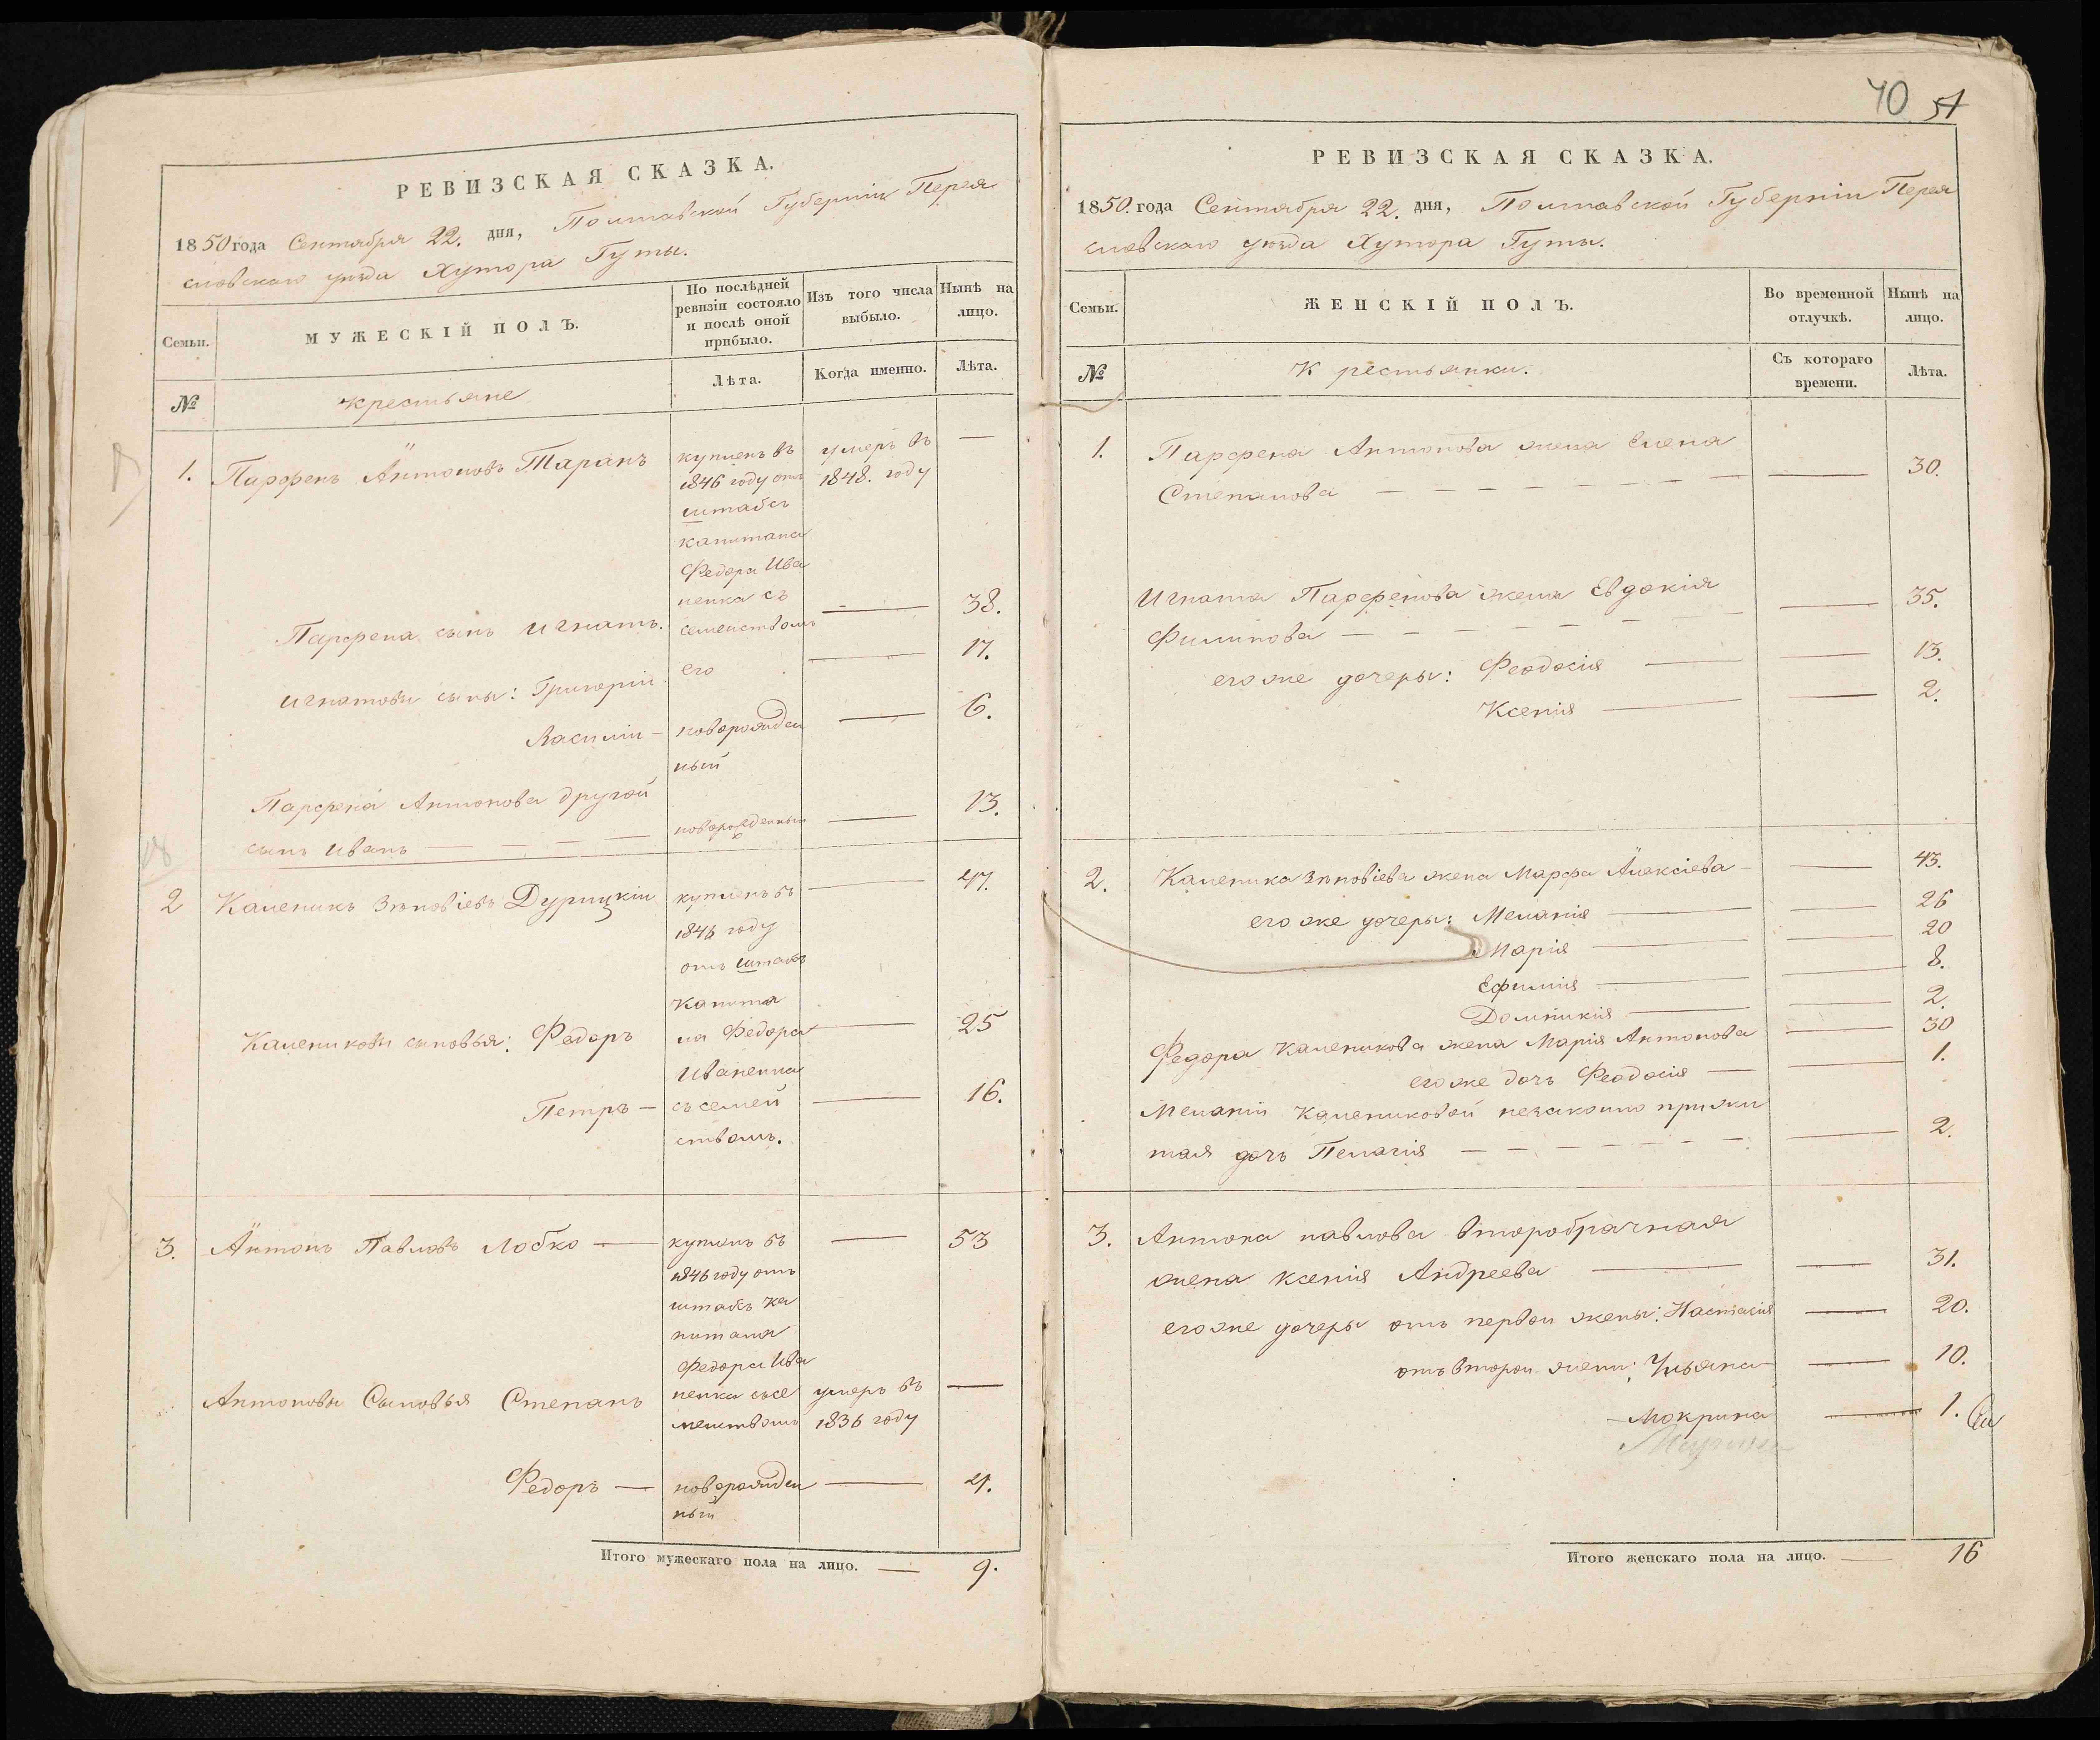 РЕВИЗСКАЯ СКАЗКА.
1850 года Сентября 22. дня, Полтавской Губернiи Перея
словскаго уѣзда Хутора Гуты.
Семьи.
МУЖЕСКIЙ ПОЛЪ.
По послѣдней
ревизiи состояло
и послѣ оной
прибыло.
Изъ того числа
выбыло.
Нынѣ на
лицо.
№
крестьяне
Лѣта.
Когда именно.
Лѣта.
1. Парфенъ Антоновъ Таранъ
купленъ въ
1846 году отъ
штабсъ
капитана
Федора Ива
ненка съ
семействомъ
его
умеръ въ
1848. году
—
Парфена сынъ Игнатъ. — 38.
Игнатовы сыны: Григорiй — 17.
Василiй — новорожден
ный — 6.
Парфена Антонова другой
сынъ Иванъ — новорожденный — 13.
2 Каленикъ Зѣновiевъ Дурицкiй
купленъ въ
1846 году
отъ штабсъ
капита
на Федора
Иваненка
съ семей
ствомъ.
— 47.
Калениковы сыновья: Федоръ — 25
Петръ — 16.
3. Антонъ Павловъ Лобко —
купленъ въ
1846 году отъ
штабсъ ка
питана
Федора Ива
ненка съ се
мействомъ
— 53
Антоновы Сыновья Степанъ
умеръ въ
1836 году
—
Федоръ — новорожден
ный — 4.
Итого мужескаго пола на лицо. — 9.
40 51
РЕВИЗСКАЯ СКАЗКА.
1850. года Сентября 22. дня, Полтавской Губернiи Перея
словскаго уѣзда Хутора Гуты.
Семьи.
ЖЕНСКIЙ ПОЛЪ.
Во временной
отлучкѣ.
Нынѣ на
лицо.
№
Крестьянки.
Съ котораго
времени.
Лѣта.
1. Парфена Антонова жена Елена
Степанова — 30.
Игната Парфенова жена Евдокiя
Филипова — 35.
его же дочеры: Феодосiя — 13.
Ксенiя — 2.
2. Каленика Зѣновiева жена Марфа Алексiева — 43.
его же дочеры: Меланiя — 26
Марiя — 20
Ефимiя — 8.
Домникiя — 2.
Федора Каленикова жена Марiя Антонова — 30
его же дочъ Феодосiя — 1.
Меланiи Калениковой незаконно прижи
тая дочъ Пелагiя — 2.
3. Антона павлова второбрачная
жена Ксенiя Андреева — 31.
его же дочеры отъ первой жены: Настасiя — 20.
отъ второй жены: Ульяна — 10.
Мокрина — 1.
Итого женскаго пола на лицо. — 16